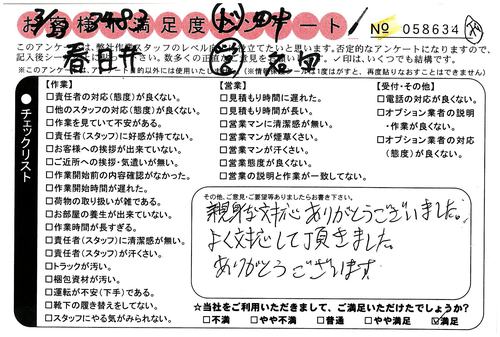 お客様満足度アンケート
№ 058634
春日井
このアンケートは、弊社作業スタッフのレベル向上に役立てたいと思います。否定的なアンケートになりますので、
記入後シール
数多くのご意見を ✓印は、いくつでも結構です。
※このアンケートは、アンケート目的以外には使用いたしません。(※情報保護シールは1度はがすと、再度貼りなおすことはできません)
チェックリスト
【作業】
□責任者の対応(態度)が良くない。
□他のスタッフの対応(態度)が良くない。
□作業を見ていて不安がある。
□責任者(スタッフ)に好感が持てない。
□お客様への挨拶が出来ていない。
□ご近所への挨拶・気遣いが無い。
□作業開始前の内容確認がなかった。
□作業開始時間に遅れた。
□荷物の取り扱いが雑である。
□お部屋の養生が出来ていない。
□作業時間が長すぎる。
□責任者(スタッフ)に清潔感が無い。
□責任者(スタッフ)が汗くさい。
□トラックが汚い。
□梱包資材が汚い。
□運転が不安(下手)である。
□靴下の履き替えをしてない。
□スタッフにやる気がみられない。
【営業】
□見積もり時間に遅れた。
□見積もり時間が長い。
□営業マンに清潔感が無い。
□営業マンが煙草くさい。
□営業マンが汗くさい。
□営業態度が良くない。
□営業の説明と作業が違っていた。
【受付・その他】
□電話の対応が良くない。
□オプション業者の説明
・作業が良くない。
□オプション業者の対応
(態度)が良くない。
その他、ご意見・ご要望等ありましたらお書き下さい。
親身な対応ありがとうございました。
よく対応して頂きました。
ありがとうございます
☆当社をご利用いただきまして、ご満足いただけたでしょうか?
□不満 □やや不満 □普通 □やや満足 ☑満足